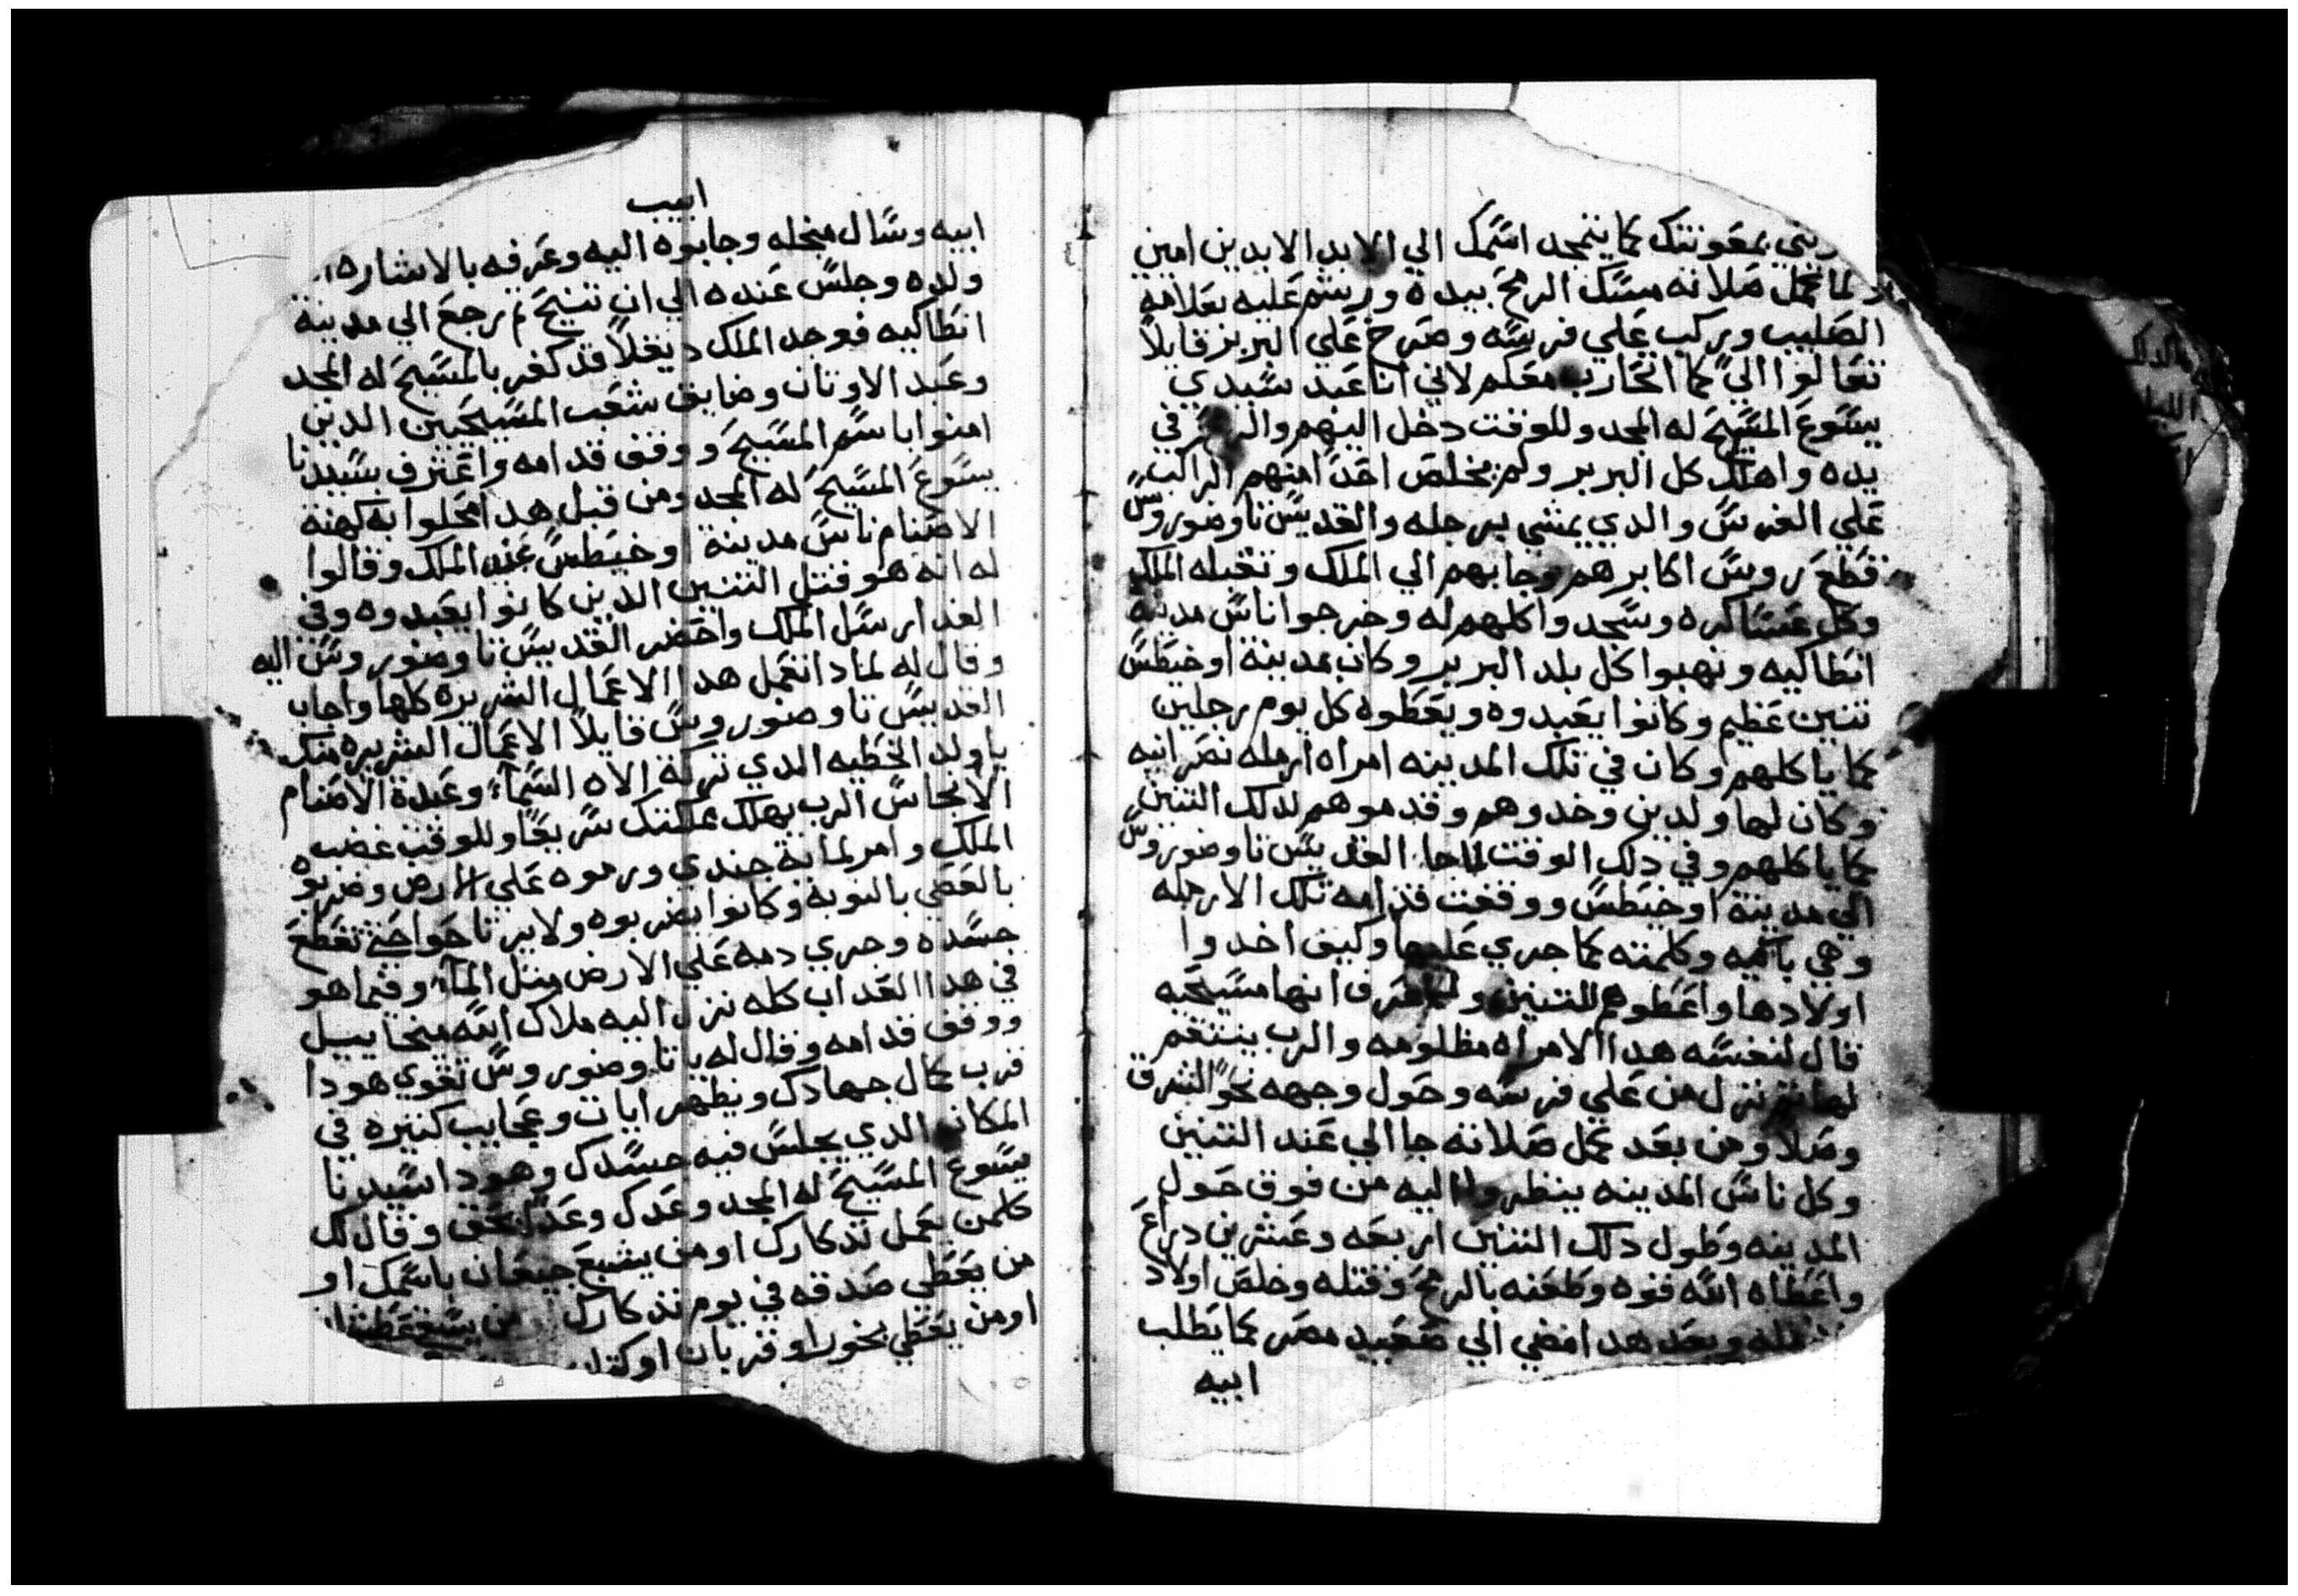 بمعونتك كما يتمجد اسمك الي الابد الابدين امين
ولما كمل صلاته مسك الرمح بيده ورشم عليه بعلامة
الصليب وركب علي فرسه وصرخ علي البربر قايلاً
تعالوا اليّ كما اتحارب معكم لاني انا عبد سيدي
يسوع المسيح له المجد وللوقت دخل اليهم في
يده واهلك كل البربر ولم يخلص احداً منهم الراكب
علي الفرس والدي يمشي برجله والقديس تاوضوروس
قطع روس اكابرهم وجابهم الي الملك وتقبله الملك
وكل عساكره وسجد واكلهم له وخرجوا ناس مدينة
انطاكيه ونهبوا كل بلد البربر وكان بمدينة اوخيطس
تنين عظيم وكانوا يعبدوه ويعطوه كل يوم رجلين
كما ياكلهم وكان في تلك المدينه امراه ارمله نصرانيه
وكان لها ولدين وخدوهم وقدموهم لدلك التنين
كما ياكلهم وفي دلك الوقت لما جا القديس تاوضوروس
الي مدينة اوخيطس ووقفت قدامه تلك الارمله
وهي باكيه وكلمته كما جري عليها وكيف اخدوا
اولادها واعطوهم للتنين ولما عرف انها مسيحيه
قال لنفسه هدا الامراه مظلومه والرب ينتقم
لها ثم نزل من علي فرسه وحول وجهه نحو الشرق
وصلا ومن بعد كمل صلاته جا الي عند التنين
وكل ناس المدينه ينظروا اليه من فوق حول
المدينه وطول دلك التنين اربعه وعشرين دراع
واعطاه الله قوه وطعنه بالرمح وقتله وخلص اولاد
وبعد هدا مضي الي صعيد مصر كما يطلب
ابيه
ابيب
ابيه وسال منجله وجابوه اليه وعرفه بالاشاره
ولده وجلس عنده الي ان تنيح ثم رجع الي مدينة
انطاكيه فوجد الملك ديقلا قد كفر بالمسيح له المجد
وعبد الاوتان وضايق شعب المسيحيين الدين
امنوا باسم المسيح ووقف قدامه واعترف بسيدنا
يسوع المسيح له المجد ومن قبل هدا محلوا به كهنة
الاصنام ناس مدينة اوخيطس عند الملك وقالوا
له انه هو قتل التنين الدين كانوا يعبدوه وفي
الغد ارسل الملك واحضر القديس تاوضوروس اليه
وقال له لمادا تعمل هدا الاعمال الشريره كلها واجاب
القديس تاوضوروس قايلاً الاعمال الشريره منك
ياولد الخطيه الدي تركة الاه السماء وعبدة الاصنام
الانجاس الرب يهلك مملكتك سريعاً وللوقت غضب
الملك وامر لماية جندي ورموه علي الارض وضربوه
بالعصي بالنوبة وكانوا يضربوه ولايرتاحوا حتي تقطع
جسده وجري دمه علي الارض متل الماء وفيما هو
في هدا العداب كله نزل اليه ملاك الله ميخاييل
ووقف قدامه وقال له يا تاوضوروس تقوي هودا
قرب كمال جهادك ويظهر ايات وعجايب كتيره في
المكان الدي يجلس فيه جسدك وهودا سيدنا
يسوع المسيح له المجد وعدك وقال لك
كلمن يعمل تدكارك او من يشبع جيعان باسمك او
من يعطي صدقه في يوم تدكارك
او من يعطي بخور او قربان او